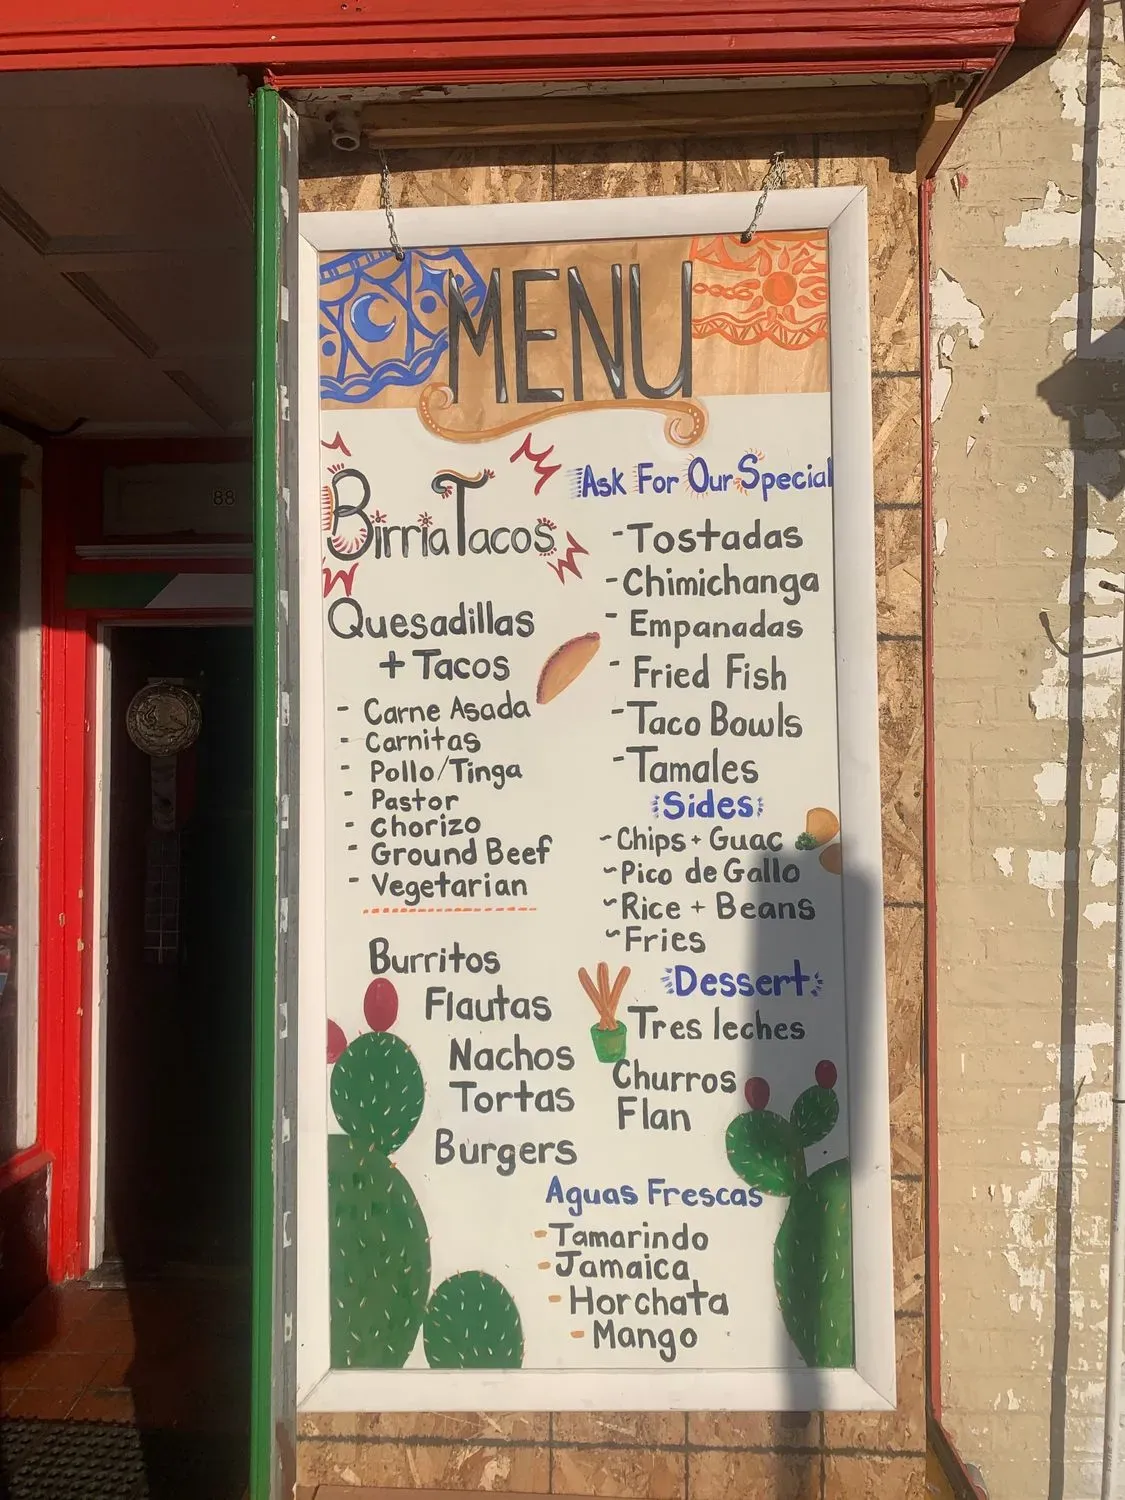 88
MENU
Birria Tacos
Quesadillas
+ Tacos
- Carne Asada
- Carnitas
- Pollo/Tinga
- Pastor
- Chorizo
- Ground Beef
- Vegetarian
Burritos
Flautas
Nachos
Tortas
Burgers
Ask For Our Special
- Tostadas
- Chimichanga
- Empanadas
- Fried Fish
- Taco Bowls
- Tamales
Sides
~ Chips + Guac
~ Pico de Gallo
~ Rice + Beans
~ Fries
Dessert
Tres leches
Churros
Flan
Aguas Frescas
- Tamarindo
- Jamaica
- Horchata
- Mango